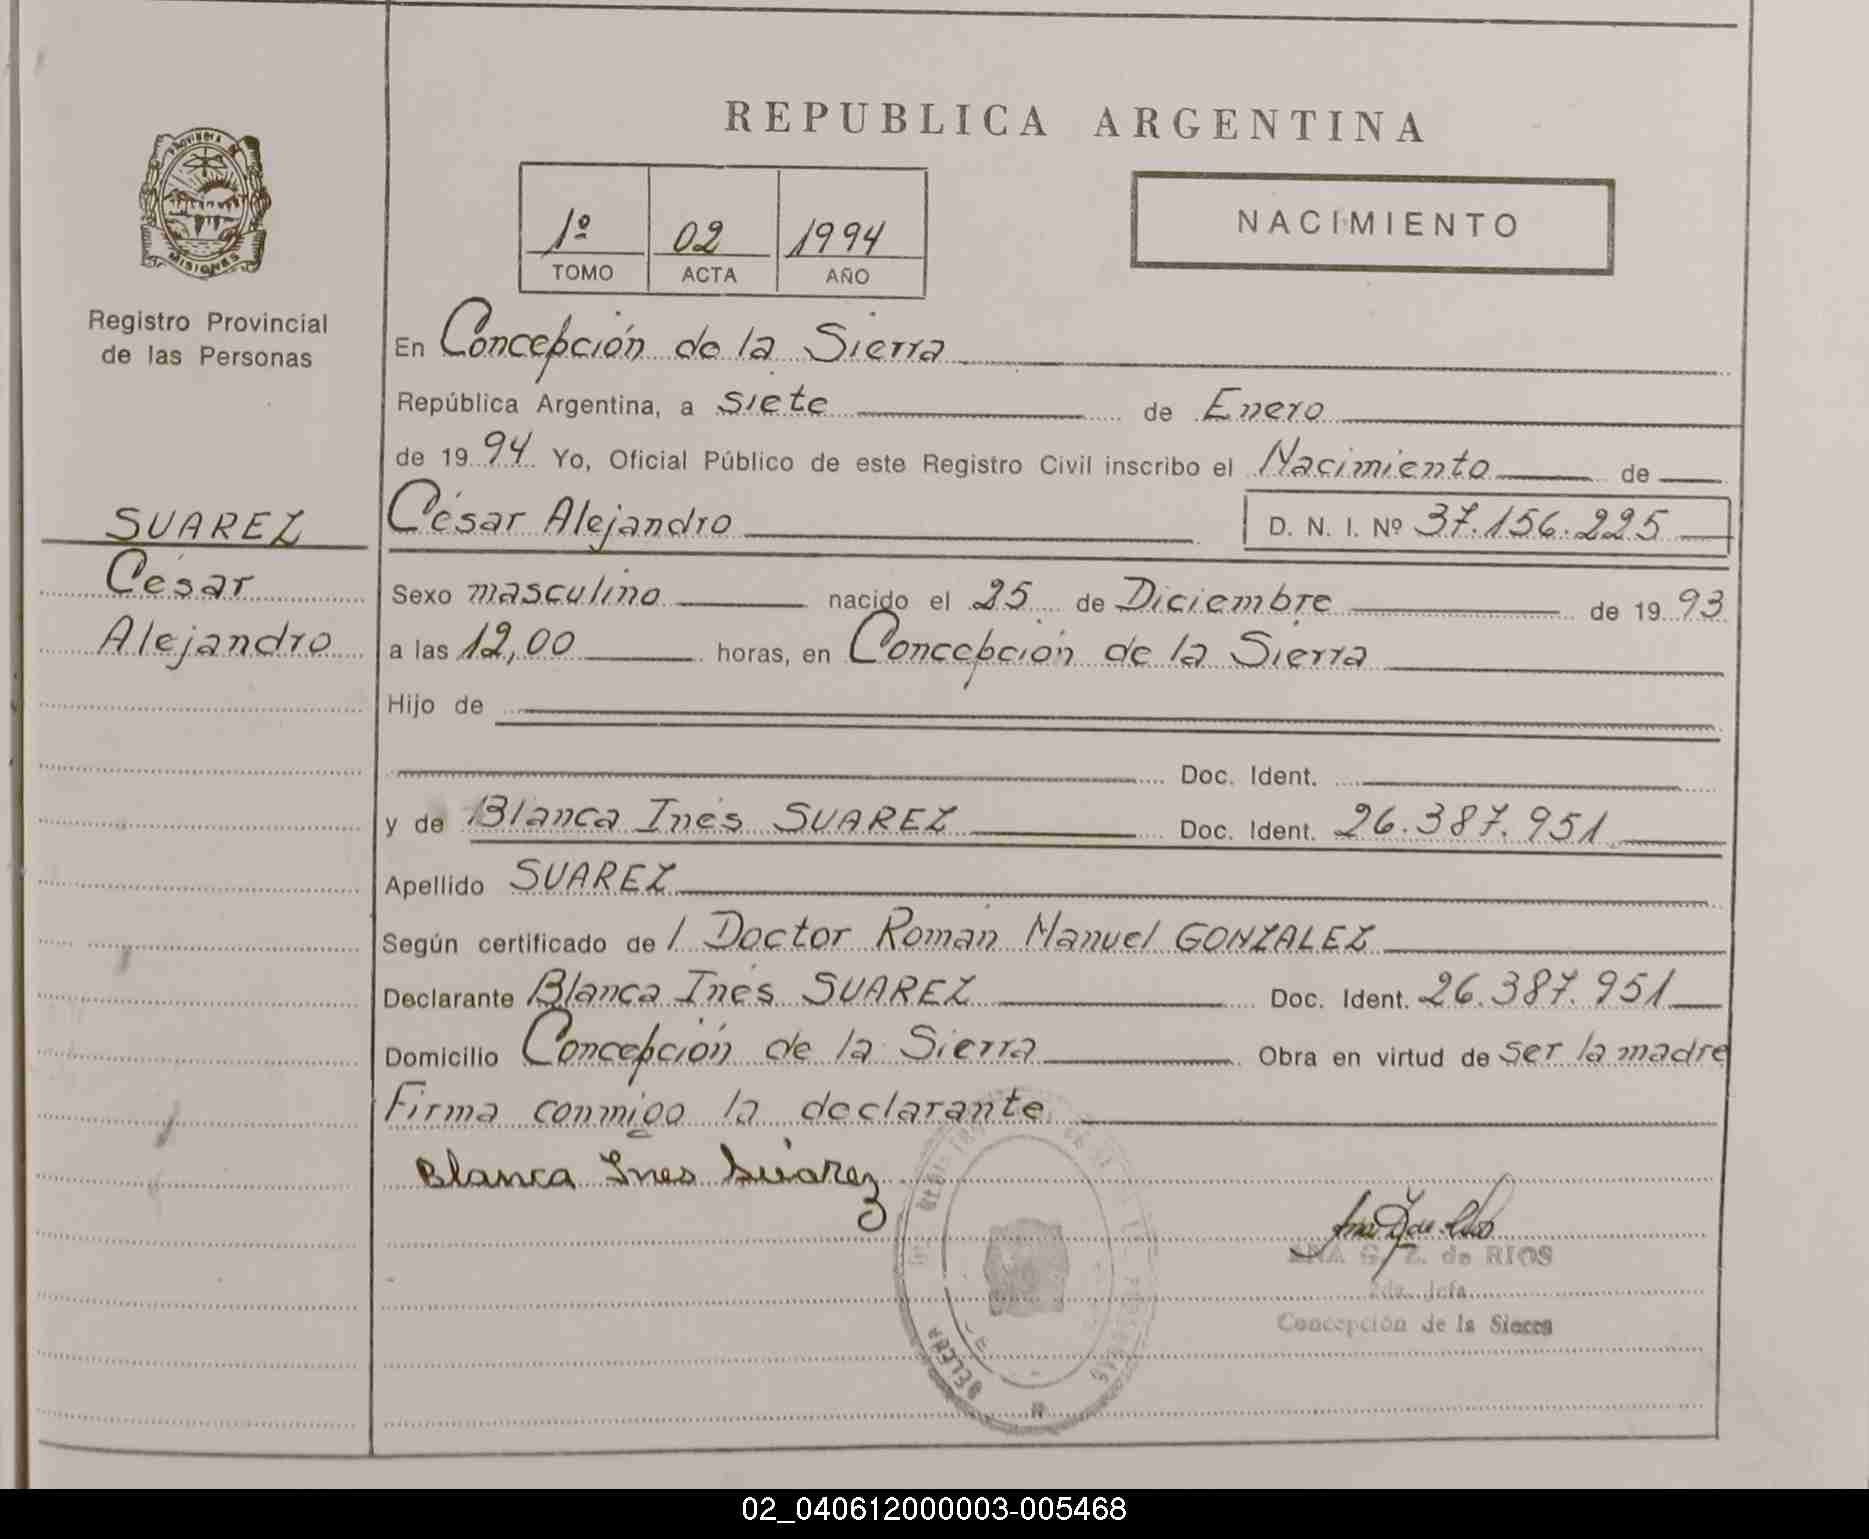 REPUBLICA ARGENTINA
PROVINCIA DE
MISIONES
Registro Provincial
de las Personas
1º 02 1994
TOMO ACTA AÑO
NACIMIENTO
En Concepción de la Sierra
República Argentina, a siete de Enero
de 1994 Yo, Oficial Público de este Registro Civil inscribo el Nacimiento de
SUAREZ
César
Alejandro
César Alejandro D. N. I. Nº 37.156.225
Sexo masculino nacido el 25 de Diciembre de 1993
a las 12,00 horas, en Concepción de la Sierra
Hijo de
Doc. Ident.
y de Blanca Inés SUAREZ Doc. Ident. 26.387.951
Apellido SUAREZ
Según certificado de l Doctor Román Manuel GONZALEZ
Declarante Blanca Inés SUAREZ Doc. Ident. 26.387.951
Domicilio Concepción de la Sierra Obra en virtud de ser la madre
Firma conmigo la declarante
Blanca Ines Suárez
ANA G. Z. de RIOS
Jefa
Concepción de la Sierra
02_040612000003-005468